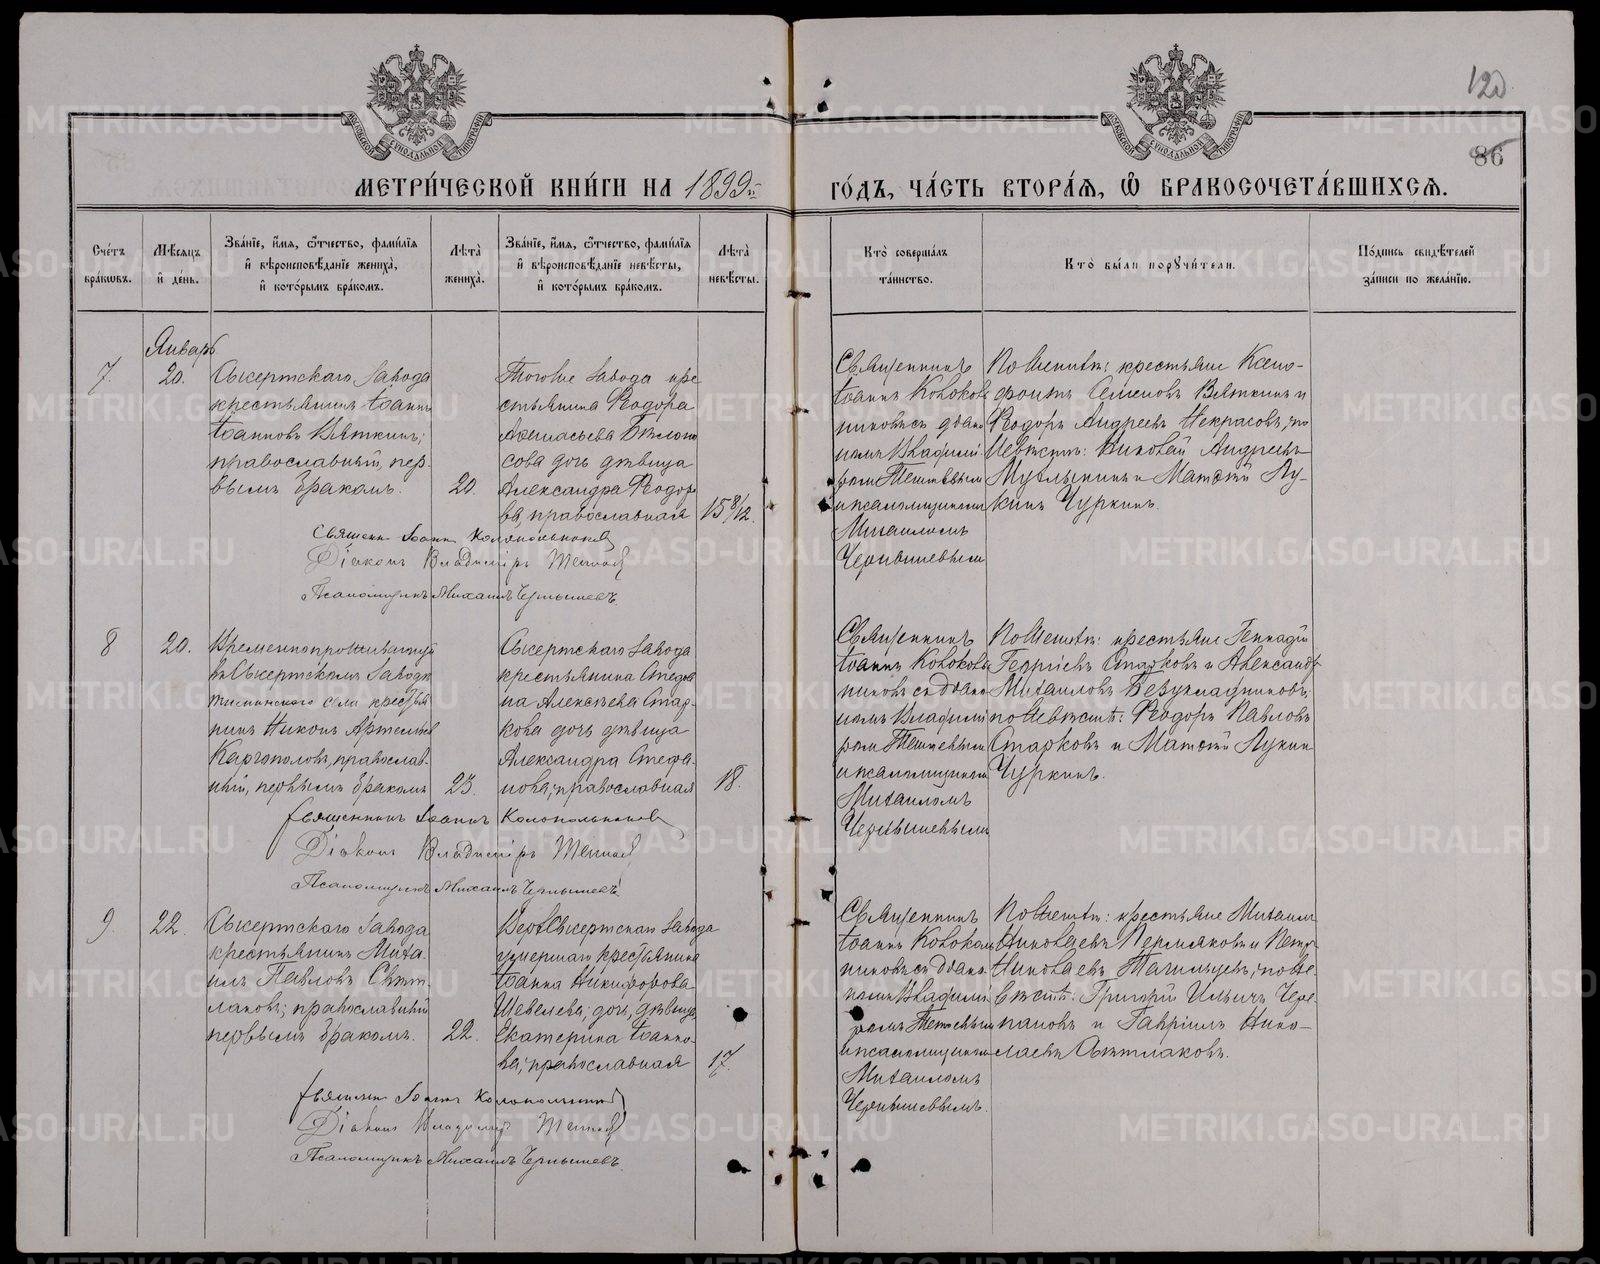 120
86
МЕТРИ́ЧЕСКОЙ КНИ́ГИ НА 1899й
ГО́ДЪ, ЧА́СТЬ ВТОРА́Ѧ, Ѽ БРАКОСОЧЕТА́ВШИХСѦ.
Сче́тъ бра́кѡвъ.
Мѣ́сяцъ и҆ де́нь.
Зва́нїе, и҆́мя, ѻ҆́тчество, фами́лїя и҆ вѣроисповѣ́данїе жениха̀, и҆ кото́рымъ бра́комъ.
Лѣ́та жениха̀.
Зва́нїе, и҆́мя, ѻ҆́тчество, фами́лїя и҆ вѣроисповѣ́данїе невѣ́сты, и҆ кото́рымъ бра́комъ.
Лѣ́та невѣ́сты.
Кто̀ соверша́лъ та́инство.
Кто̀ бы́ли поручи́тели.
По́дпись свидѣ́телей за́писи по жела́нїю.
7.
Январь
20.
Сысертскаго Завода
крестьянинъ Іоаннъ
Іоанновъ Вяткинъ;
православный, пер-
вымъ бракомъ.
20.
Тогоже Завода кре
стьянина Ѳеодора
Аѳанасьева Бѣлоно
сова дочь дѣвица
Александра Ѳеодор
ва, православная
15 8/12.
Священникъ
Іоаннъ Колоколь
никовъ съ діако
номъ Владимі
ромъ Тетневымъ
и псаломщикомъ
Михаиломъ
Чернышевымъ
По женихѣ: крестьяне Ксено-
фонтъ Семеновъ Вяткинъ и
Ѳеодоръ Андреевъ Некрасовъ, по
невѣстѣ: Николай Андреевъ
Мутлыкинъ и Матѳей Лу-
кинъ Чуркинъ.
Священн. Іоаннъ Колокольниковъ
Діаконъ Владиміръ
Псаломщикъ Михаилъ Чернышевъ.
8
20.
Временнопроживающій
въ Сысертскомъ Заводѣ
села крестья
нинъ Никонъ Артемьевъ
Каргополовъ, православ-
ный, первымъ бракомъ
23.
Сысертскаго Завода
крестьянина Стефа
на Алексѣева Стар-
кова дочь дѣвица
Александра Стефа-
нова, православная
18.
Священникъ
Іоаннъ Колоколь
никовъ съ діако
номъ Владимі
ромъ Тетневымъ
и псаломщикомъ
Михаиломъ
Чернышевымъ
По женихѣ: крестьяне Геннадій
Георгіевъ Старковъ и Александръ
Михаиловъ Безукладниковъ;
по невѣстѣ: Ѳеодоръ Павловъ
Старковъ и Матѳей Лукинъ
Чуркинъ.
Священникъ Іоаннъ Колокольниковъ
Діаконъ Владиміръ
Псаломщикъ Михаилъ Чернышевъ
9.
22.
Сысертскаго Завода
крестьянинъ Миха-
илъ Павловъ Свѣт-
лаковъ; православный
первымъ бракомъ.
22.
ВерхСысертскаго Завода
умершаго крестьянина
Іоанна Никифорова
Шевелева, дочь, дѣвица
Екатерина Іоанно-
ва, православная
17.
Священникъ
Іоаннъ Колоколь
никовъ съ діако
номъ Владимі
ромъ Тетневымъ
и псаломщикомъ
Михаиломъ
Чернышевымъ.
По женихѣ: крестьяне Михаилъ
Николаевъ Пермяковъ и Петръ
Николаевъ Тагильцевъ; по не-
вѣстѣ: Григорій Ильинъ Чере-
пановъ и Гавріилъ Нико-
лаевъ Свѣтлаковъ.
Священн. Іоаннъ Колокольниковъ
Діаконъ Владиміръ
Псаломщикъ Михаилъ Чернышевъ.
METRIKI.GASO-URAL.RU